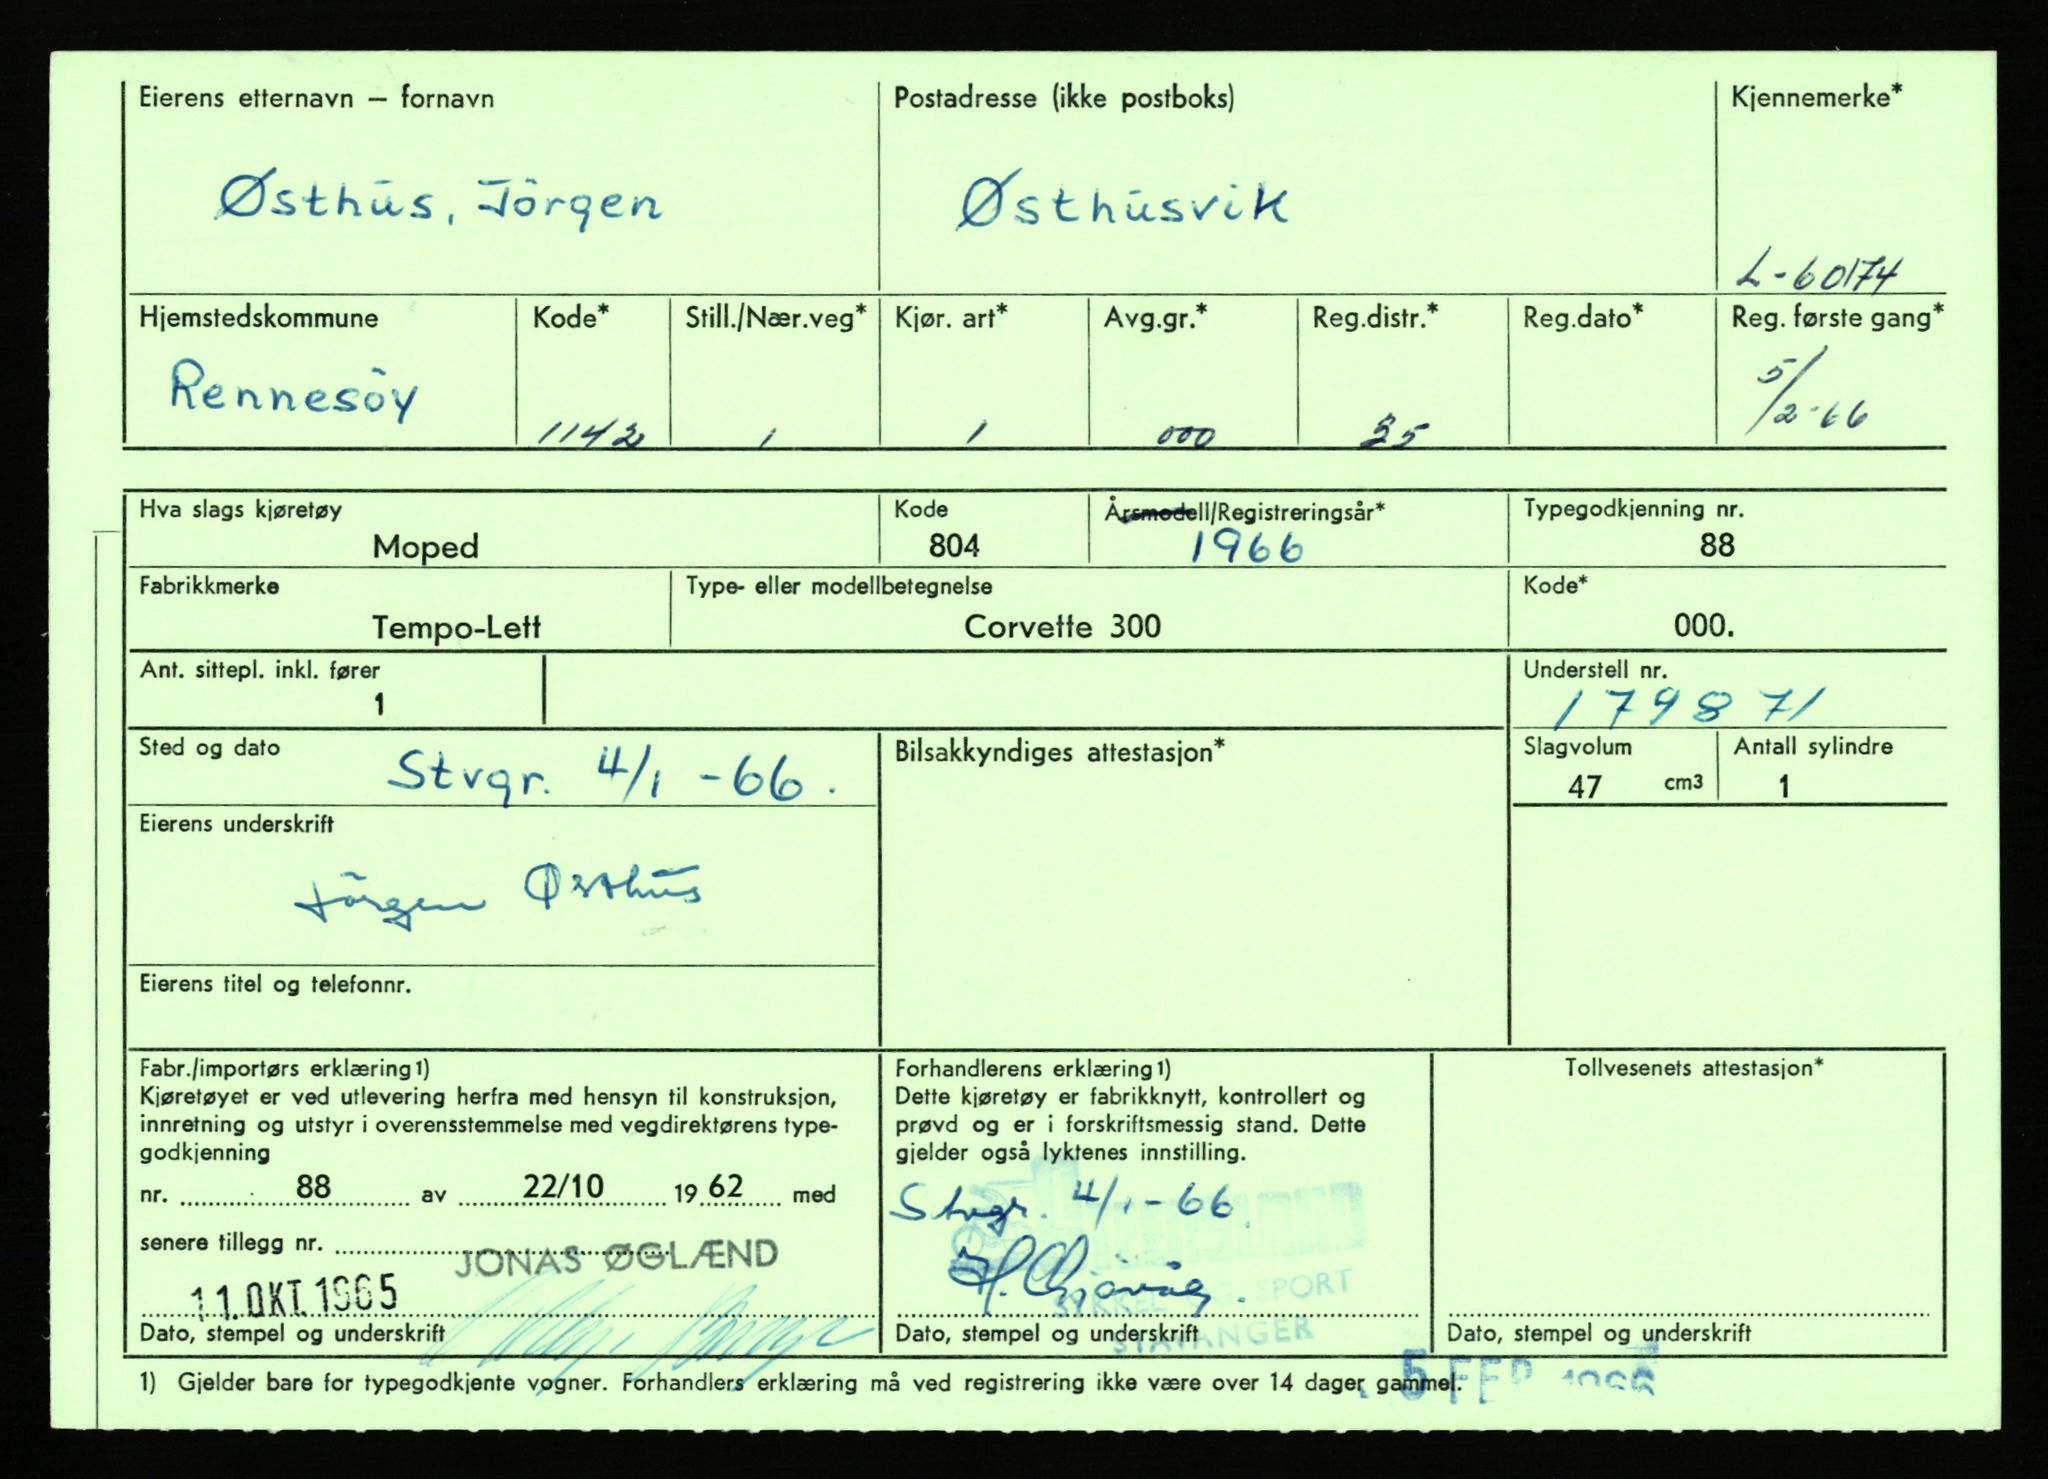 Eierens etternavn – fornavn
Postadresse (ikke postboks)
Kjennemerke*
Østhus, Jörgen
Østhusvik
L-60174
Hjemstedskommune
Kode*
Still./Nær.veg*
Kjør. art*
Avg.gr.*
Reg.distr.*
Reg.dato*
Reg. første gang*
Rennesöy
1142
1
1
000
35
5/2-66
Hva slags kjøretøy
Kode
Årsmodell/Registreringsår*
Typegodkjenning nr.
Moped
804
1966
88
Fabrikkmerke
Type- eller modellbetegnelse
Kode*
Tempo-Lett
Corvette 300
000.
Ant. sittepl. inkl. fører
1
Understell nr.
179871
Sted og dato
Stvgr. 4/1 -66.
Bilsakkyndiges attestasjon*
Slagvolum
47 cm3
Antall sylindre
1
Eierens underskrift
Jörgen Østhus
Eierens titel og telefonnr.
Fabr./importørs erklæring1)
Kjøretøyet er ved utlevering herfra med hensyn til konstruksjon,
innretning og utstyr i overensstemmelse med vegdirektørens type-
godkjenning
nr. 88 av 22/10 1962 med
senere tillegg nr.
JONAS ØGLÆND
11. OKT. 1965
Dato, stempel og underskrift
Forhandlerens erklæring1)
Dette kjøretøy er fabrikknytt, kontrollert og
prøvd og er i forskriftsmessig stand. Dette
gjelder også lyktenes innstilling.
Stvgr. 4/1-66.
SYKKEL OG SPORT
STAVANGER
Dato, stempel og underskrift
Tollvesenets attestasjon*
Dato, stempel og underskrift
1) Gjelder bare for typegodkjente vogner. Forhandlers erklæring må ved registrering ikke være over 14 dager gammel.
5 FEB 1966